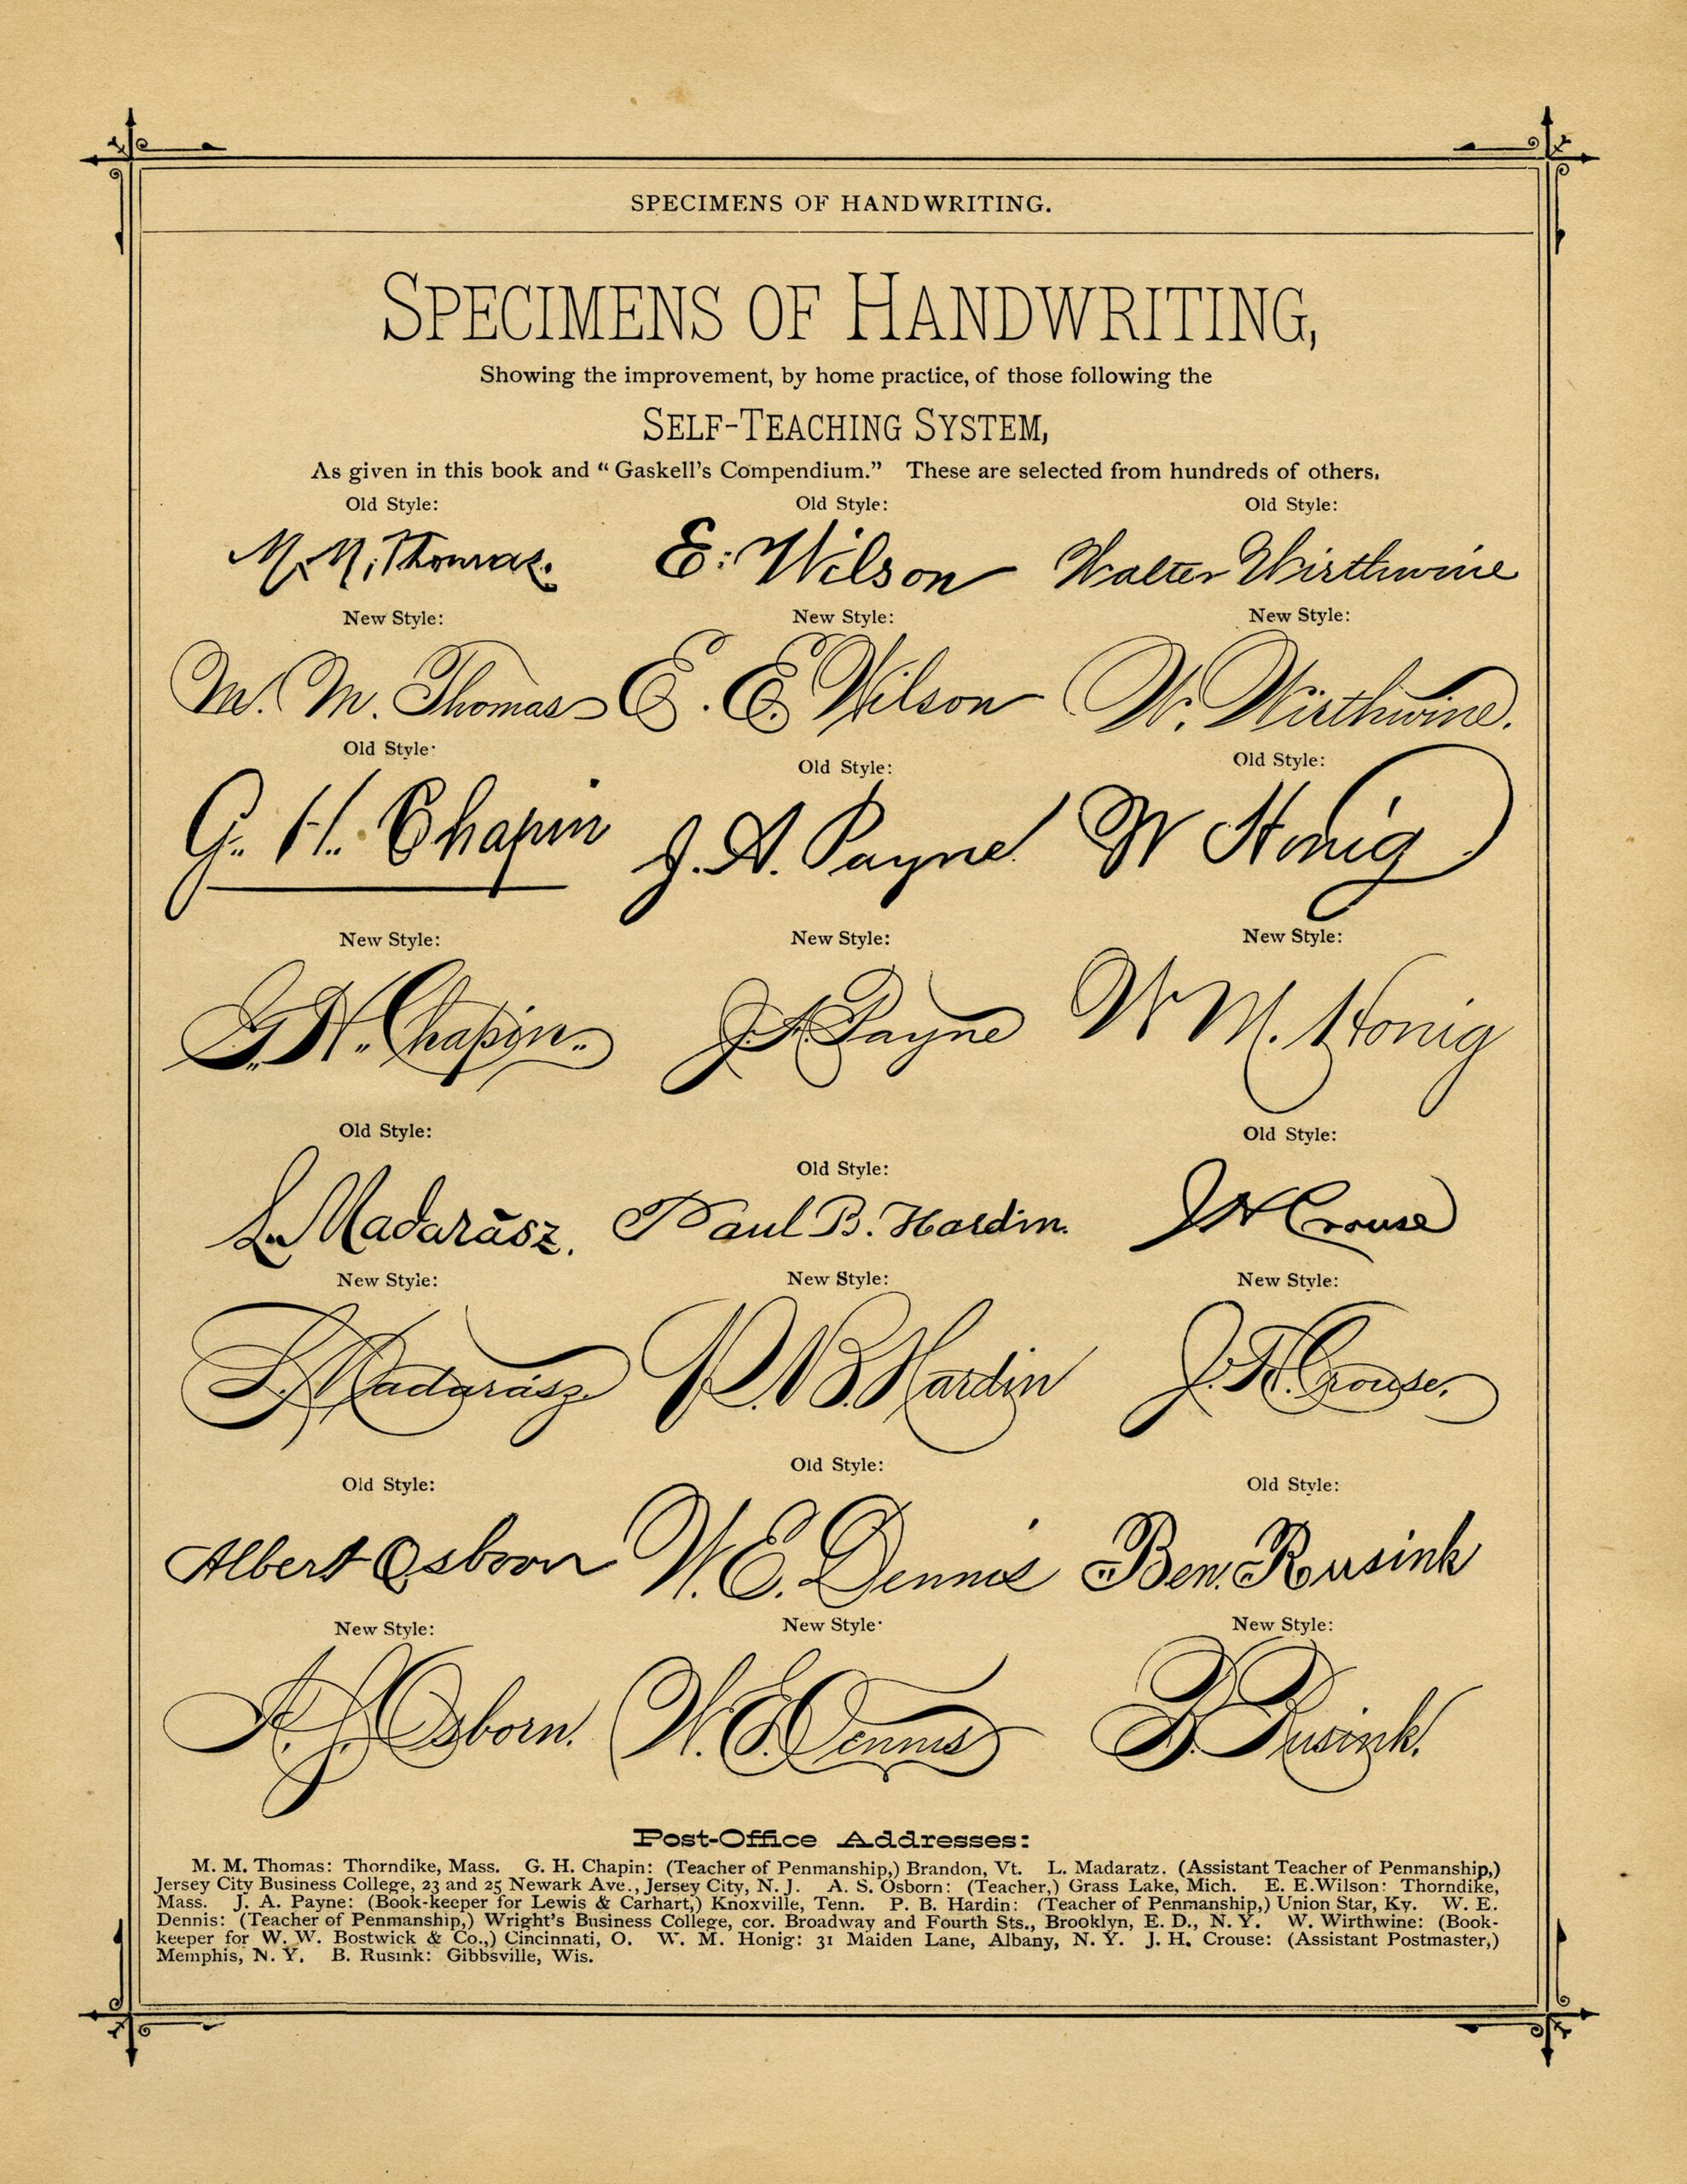 SPECIMENS OF HANDWRITING.
SPECIMENS OF HANDWRITING,
Showing the improvement, by home practice, of those following the
SELF-TEACHING SYSTEM,
As given in this book and "Gaskell's Compendium." These are selected from hundreds of others.
Old Style: Old Style: Old Style:
M. M. Thomas. E. Wilson Walter Wirthwine
New Style: New Style: New Style:
M. M. Thomas E. E. Wilson W. Wirthwine.
Old Style: Old Style: Old Style:
G. H. Chapin J. A. Payne. W Honig
New Style: New Style: New Style:
G. H. Chapin. J. A. Payne W M. Honig
Old Style: Old Style: Old Style:
L. Madarász. Paul B. Hardin. J H Crouse
New Style: New Style: New Style:
L. Madarász. P. B. Hardin J. H. Crouse.
Old Style: Old Style: Old Style:
Albert Osborn W. E. Dennis Ben. Rusink
New Style: New Style: New Style:
A. S. Osborn. W. E. Dennis B. Rusink.
Post-Office Addresses:
M. M. Thomas: Thorndike, Mass. G. H. Chapin: (Teacher of Penmanship,) Brandon, Vt. L. Madaratz. (Assistant Teacher of Penmanship,)
Jersey City Business College, 23 and 25 Newark Ave., Jersey City, N. J. A. S. Osborn: (Teacher,) Grass Lake, Mich. E. E. Wilson: Thorndike,
Mass. J. A. Payne: (Book-keeper for Lewis & Carhart,) Knoxville, Tenn. P. B. Hardin: (Teacher of Penmanship,) Union Star, Ky. W. E.
Dennis: (Teacher of Penmanship,) Wright's Business College, cor. Broadway and Fourth Sts., Brooklyn, E. D., N. Y. W. Wirthwine: (Book-
keeper for W. W. Bostwick & Co.,) Cincinnati, O. W. M. Honig: 31 Maiden Lane, Albany, N. Y. J. H. Crouse: (Assistant Postmaster,)
Memphis, N. Y. B. Rusink: Gibbsville, Wis.